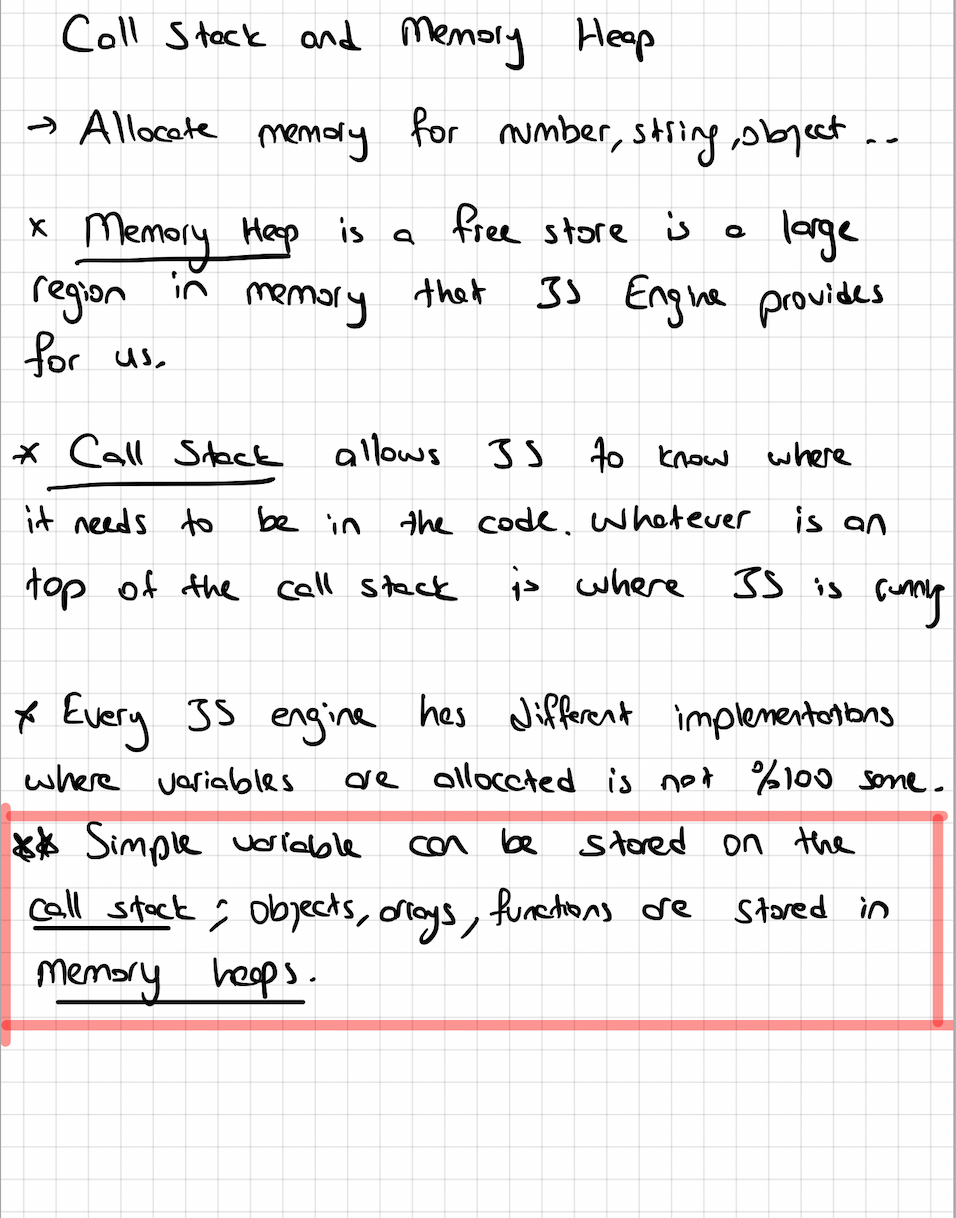 Call Stack and Memory Heap
→ Allocate memory for number, string, object ..
* Memory Heap is a free store is a large
region in memory that JS Engine provides
for us.
* Call Stack allows JS to know where
it needs to be in the code. Whatever is on
top of the call stack is where JS is running
* Every JS engine has different implementations
where variables are allocated is not %100 same.
** Simple variable can be stored on the
call stack ; objects, arrays, functions are stored in
memory heaps.